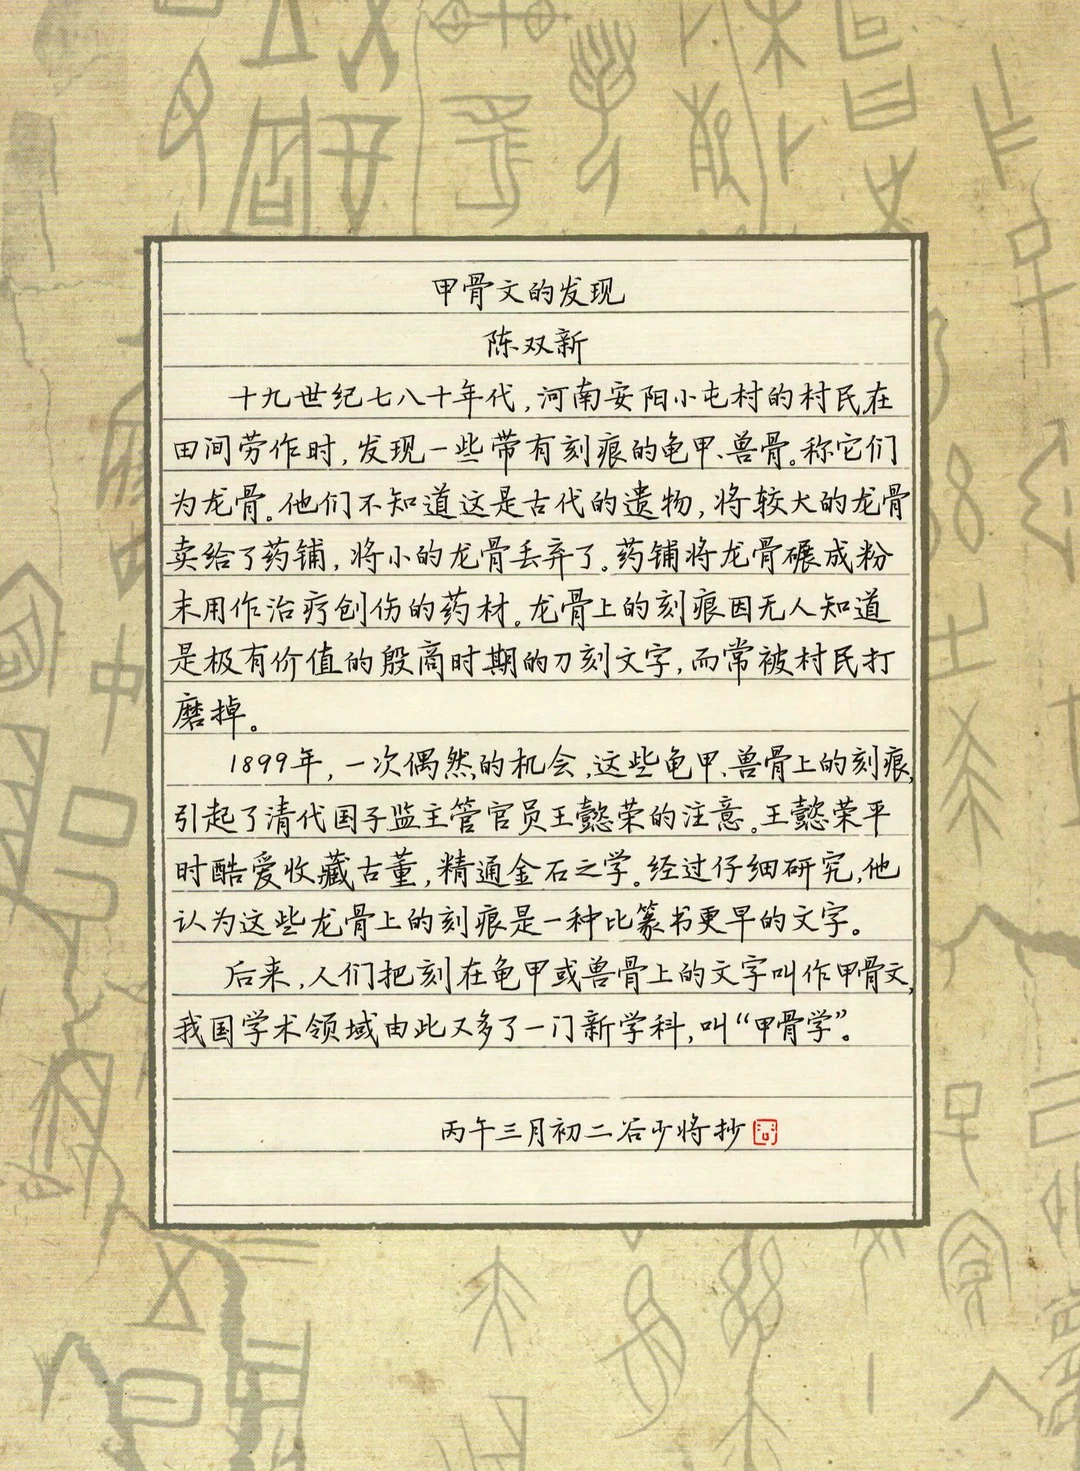 甲骨文的发现
陈双新
十九世纪七八十年代,河南安阳小屯村的村民,在
田间劳作时,发现一些带有刻痕的龟甲、兽骨。称它们
为龙骨。他们不知道这是古代的遗物,将较大的龙骨
卖给了药铺,将小的龙骨丢弃了。药铺将龙骨碾成粉
末用作治疗创伤的药材。龙骨上的刻痕因无人知道
是极有价值的殷商时期的刀刻文字,而常被村民打
磨掉。
1899年,一次偶然的机会,这些龟甲、兽骨上的刻痕,
引起了清代国子监主管官员王懿荣的注意。王懿荣平
时酷爱收藏古董,精通金石之学。经过仔细研究,他
认为这些龙骨上的刻痕是一种比篆书更早的文字。
后来,人们把刻在龟甲或兽骨上的文字叫作甲骨文,
我国学术领域由此又多了一门新学科,叫“甲骨学”。
丙午三月初二谷少将抄